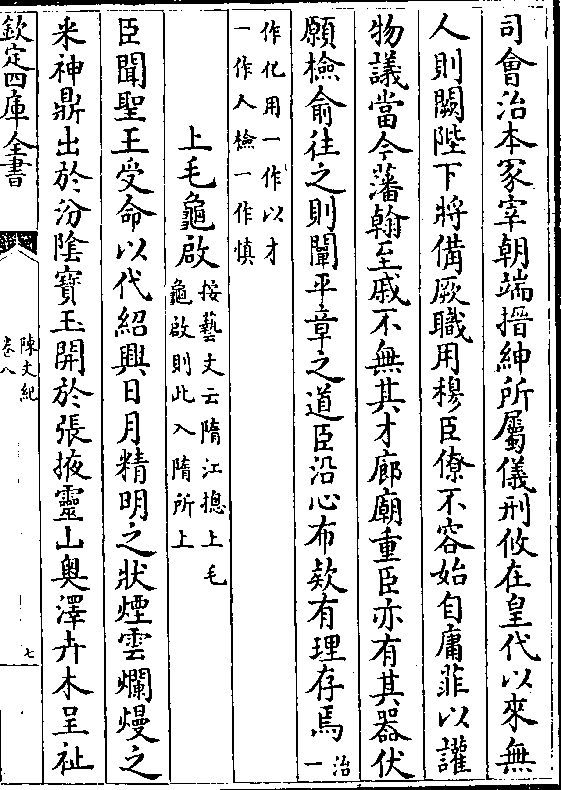 司會治本冢宰朝端搢紳所屬儀刑攸在皇代以來無
人則闕陛下將備厥職用穆臣僚不容始自庸菲以讙
物議當今藩翰至戚不無其才廊廟重臣亦有其器伏
願檢俞往之則闡平章之道臣沿心布欵有理存焉治一
作化用一作以才
一作人檢一作慎
上毛龜啟按藝文云隋江摠上毛
龜啟則此入隋所上
臣聞聖王受命以代紹興日月精明之狀煙雲爛熳之
采神鼎出於汾陰寶玉開於張掖靈山奥澤卉木呈祉
欽定四庫全書
陳文紀
卷八
七